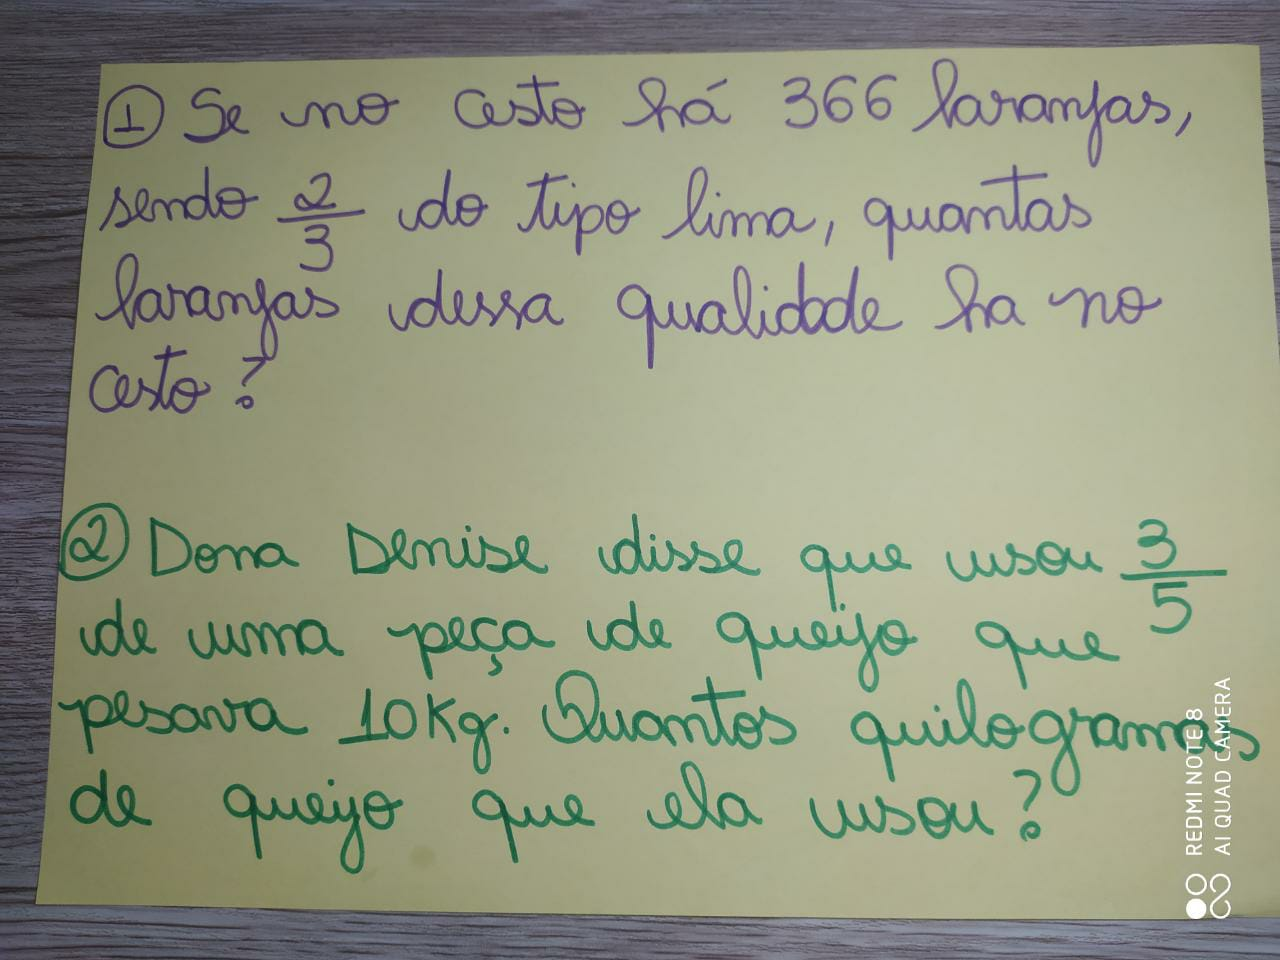 ① Se no cesto há 366 laranjas,
sendo 2/3 do tipo lima, quantas
laranjas dessa qualidade ha no
cesto?
② Dona Denise disse que usou 3/5
de uma peça de queijo que
pesava 10Kg. Quantos quilogramas
de queijo que ela usou?
REDMI NOTE 8
AI QUAD CAMERA